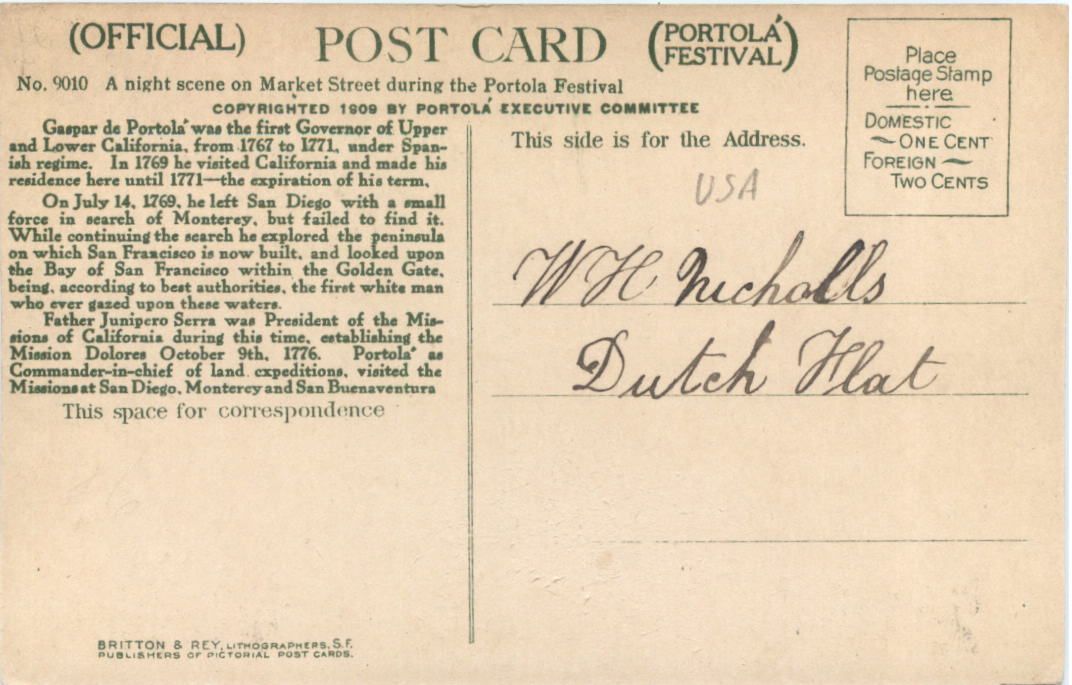 (OFFICIAL) POST CARD (PORTOLÁ FESTIVAL)
No. 9010 A night scene on Market Street during the Portola Festival
COPYRIGHTED 1909 BY PORTOLÁ EXECUTIVE COMMITTEE
Gaspar de Portolá was the first Governor of Upper
and Lower California, from 1767 to 1771, under Span-
ish regime. In 1769 he visited California and made his
residence here until 1771—the expiration of his term.
On July 14, 1769, he left San Diego with a small
force in search of Monterey, but failed to find it.
While continuing the search he explored the peninsula
on which San Francisco is now built, and looked upon
the Bay of San Francisco within the Golden Gate,
being, according to best authorities, the first white man
who ever gazed upon these waters.
Father Junipero Serra was President of the Mis-
sions of California during this time, establishing the
Mission Dolores October 9th, 1776. Portolá as
Commander-in-chief of land expeditions, visited the
Missions at San Diego, Monterey and San Buenaventura
This space for correspondence
BRITTON & REY, LITHOGRAPHERS, S.F.
PUBLISHERS OF PICTORIAL POST CARDS.
This side is for the Address.
USA
W H Nicholls
Dutch Flat
Place
Postage Stamp
here
DOMESTIC
ONE CENT
FOREIGN
TWO CENTS